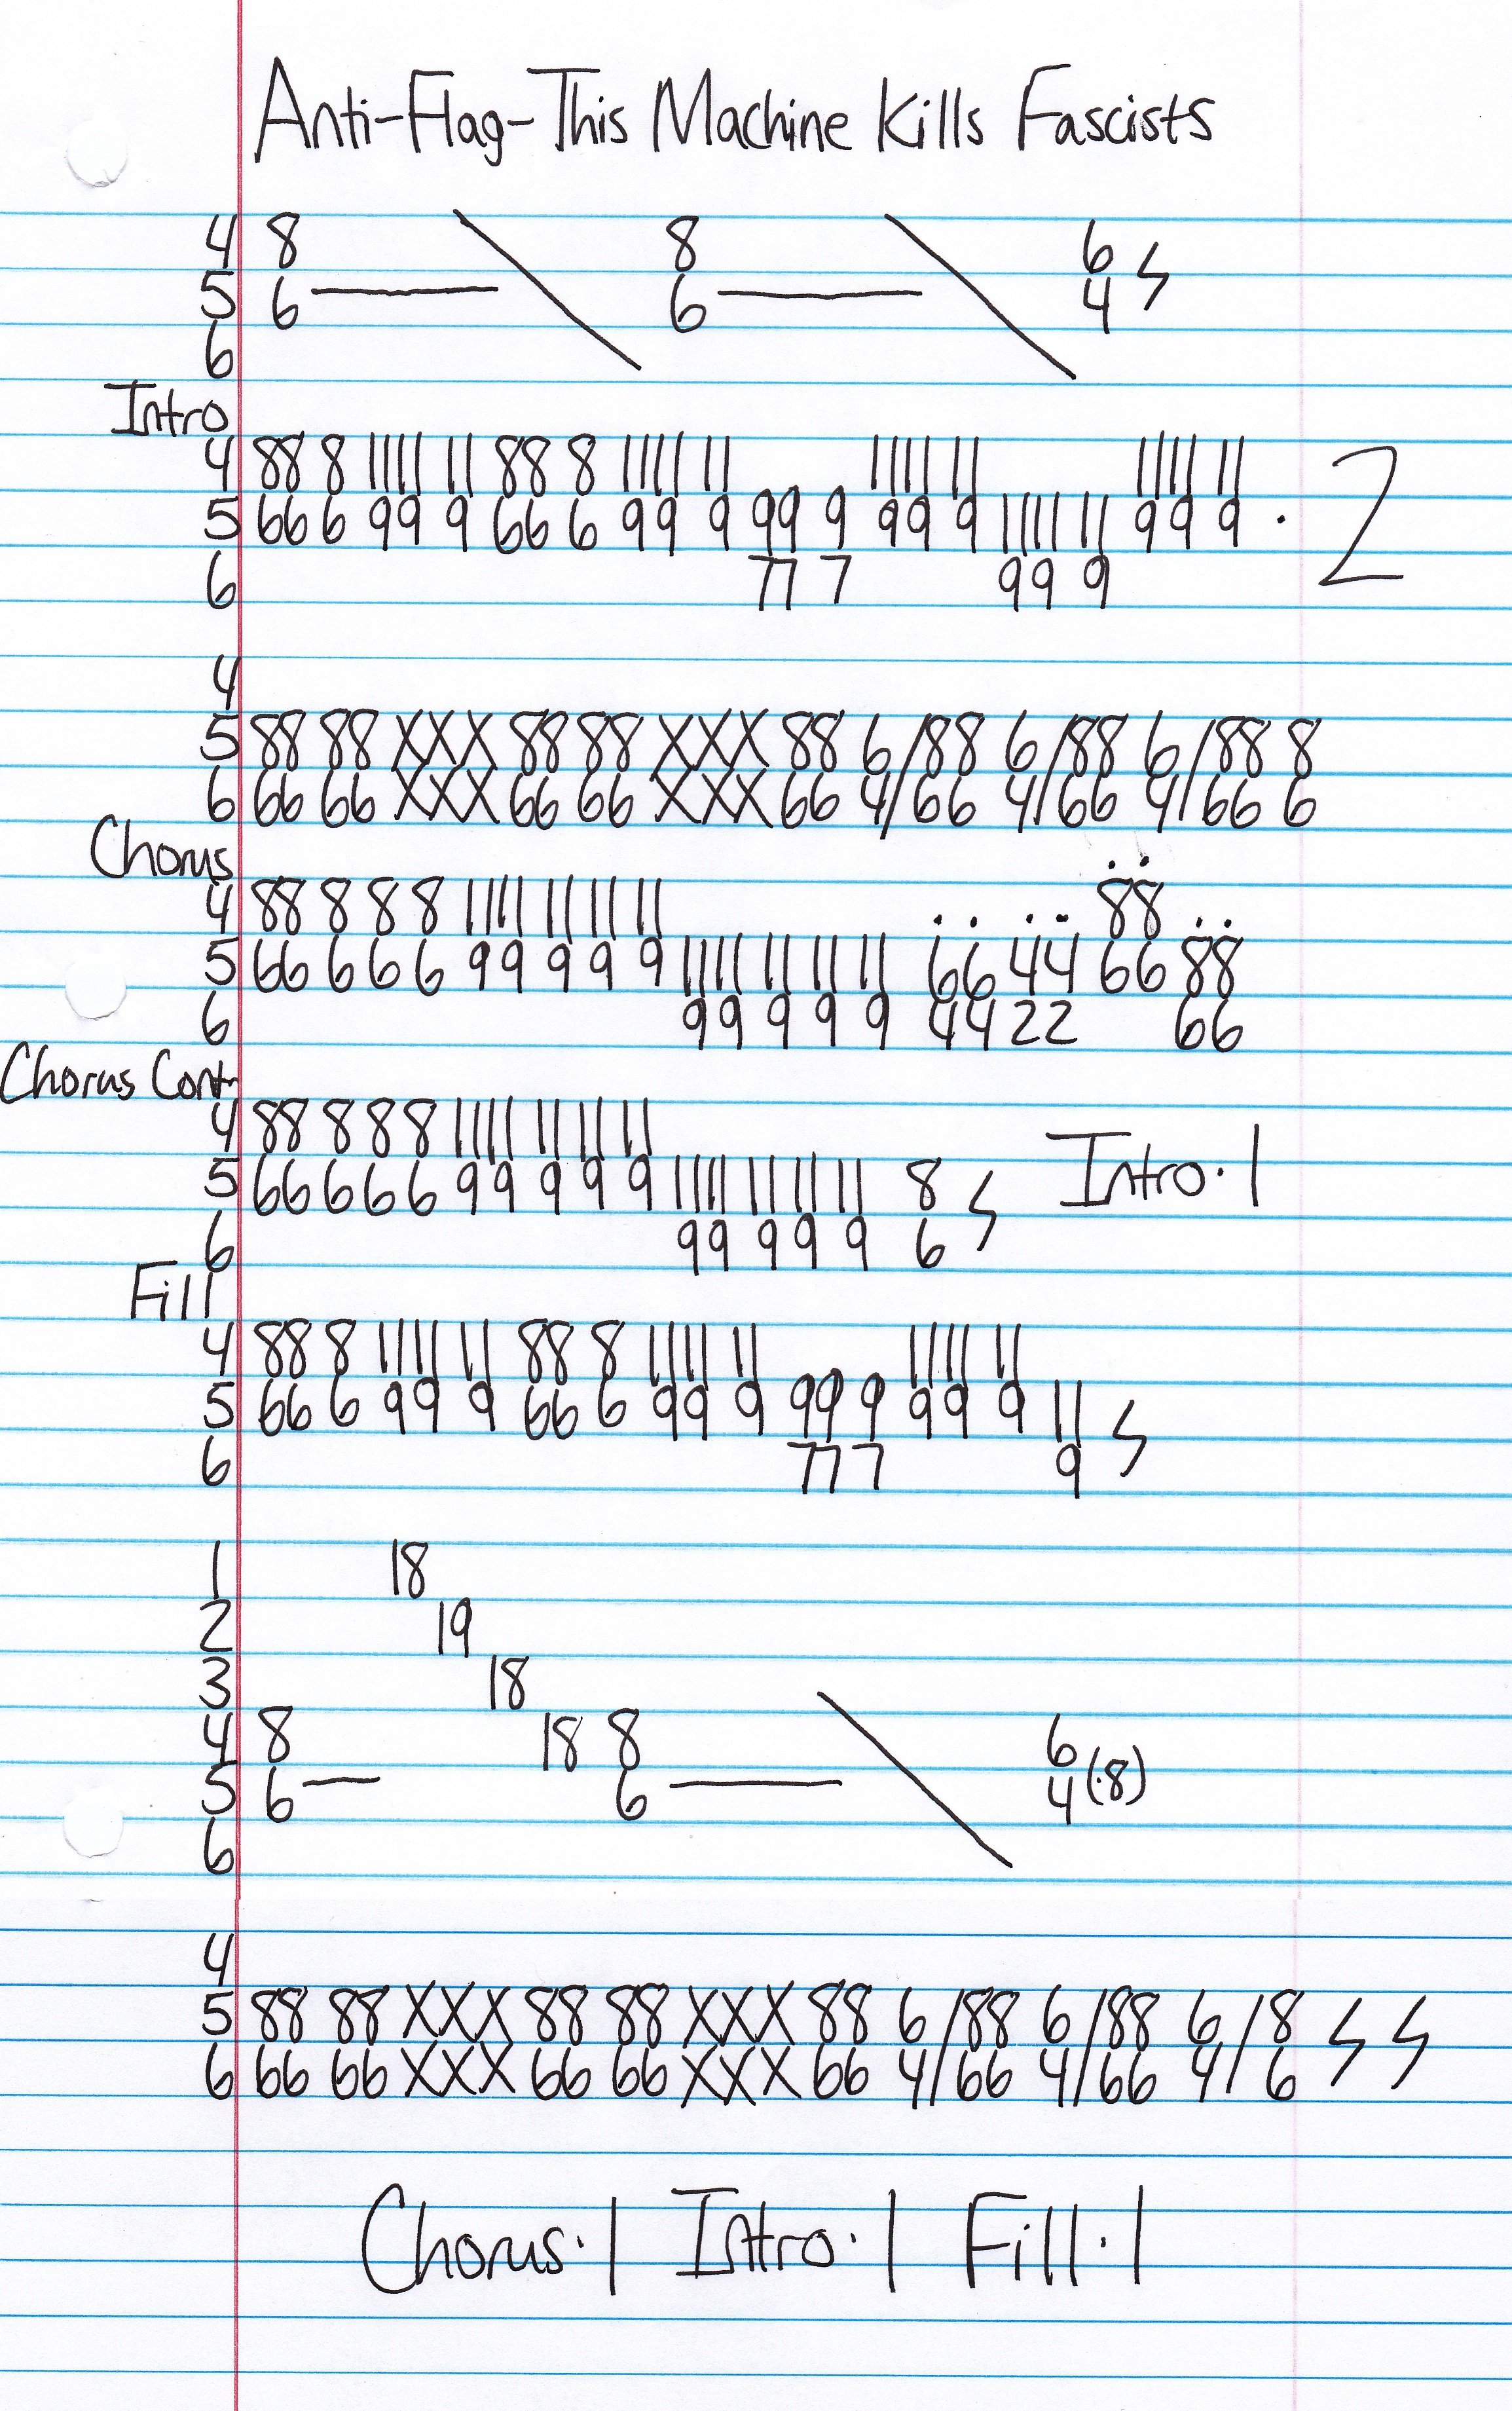 Anti-Flag-This Machine Kills Fascists
4 8 8 6
5 6 — 6 — 4
6
Intro
4 88 8 11 11 11 88 8 11 11 11 11 11 11 11 11 11
5 66 6 99 9 66 6 99 9 99 9 99 9 11 11 11 99 9 · 2
6 77 7 99 9
4
5 88 88 XXX 88 88 XXX 88 6/88 6/88 6/88 8
6 66 66 XXX 66 66 XXX 66 4/66 4/66 4/66 6
Chorus
4 88 8 8 8 11 11 11 11 11 88
5 66 6 6 6 99 9 9 9 11 11 11 11 11 66 44 66 88
6 99 9 9 9 44 22 66
Chorus Cont.
4 88 8 8 8 11 11 11 11 11
5 66 6 6 6 99 9 9 9 11 11 11 11 11 8 Intro·1
6 99 9 9 9 6
Fill
4 88 8 11 11 11 88 8 11 11 11 11 11 11
5 66 6 99 9 66 6 99 9 99 9 99 9 11
6 77 7 9
1 18
2 19
3 18
4 8 18 8 6
5 6 — 6 — 4 (·8)
6
4
5 88 88 XXX 88 88 XXX 88 6/88 6/88 6/8
6 66 66 XXX 66 66 XXX 66 4/66 4/66 4/6
Chorus·1 Intro·1 Fill·1